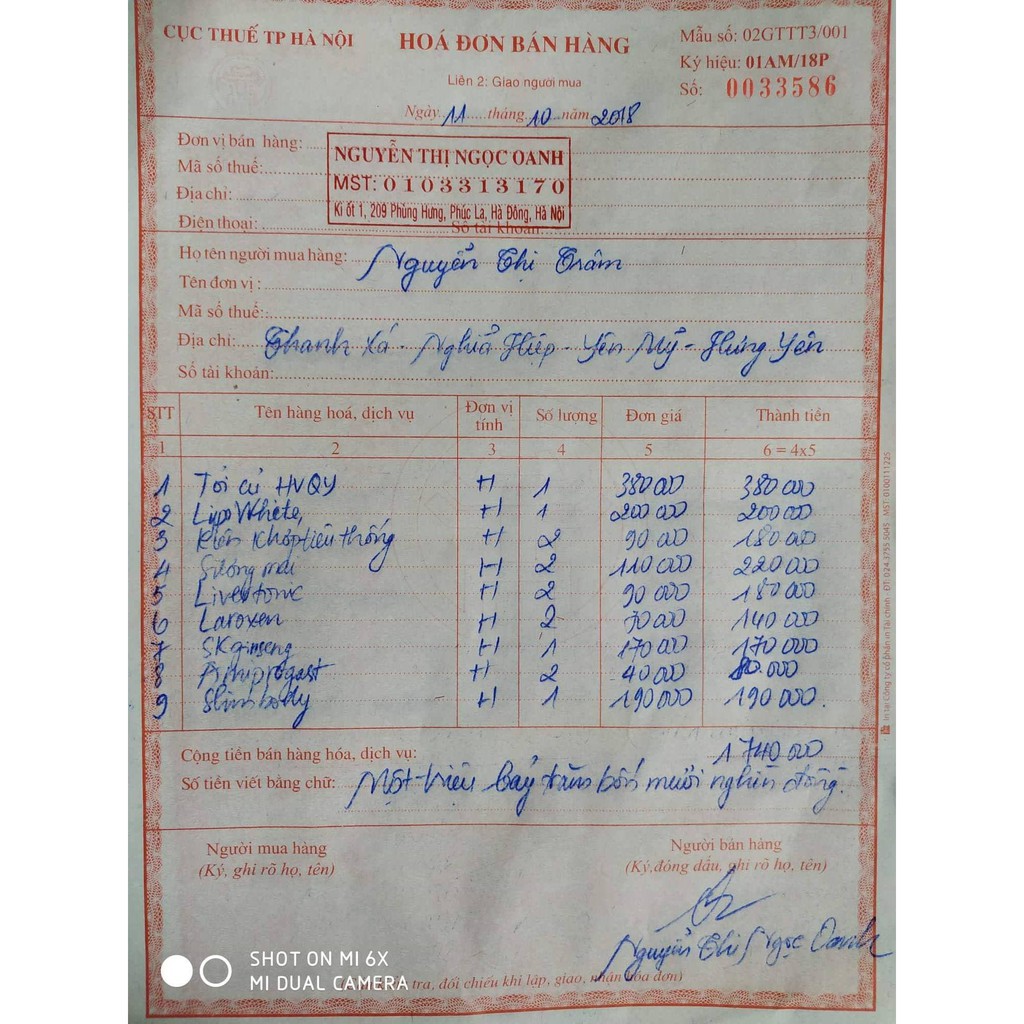 CỤC THUẾ TP HÀ NỘI
HOÁ ĐƠN BÁN HÀNG
Liên 2: Giao người mua
Mẫu số: 02GTTT3/001
Ký hiệu: 01AM/18P
Số: 0033586
Ngày 11 tháng 10 năm 2018
Đơn vị bán hàng:
NGUYỄN THỊ NGỌC OANH
Mã số thuế:
MST: 0103313170
Địa chỉ:
Ki ốt 1, 209 Phùng Hưng, Phúc La, Hà Đông, Hà Nội
Điện thoại: Số tài khoản:
Họ tên người mua hàng: Nguyễn Thị Trâm
Tên đơn vị:
Mã số thuế:
Địa chỉ: Thanh Xá - Nghĩa Hiệp - Yên Mỹ - Hưng Yên
Số tài khoản:
STT Tên hàng hoá, dịch vụ Đơn vị tính Số lượng Đơn giá Thành tiền
1 2 3 4 5 6 = 4x5
1 Tỏi củ HVQY H 1 380 000 380 000
2 Lipo White H 1 200 000 200 000
3 Kiện khớp tiêu thống H 2 90 000 180 000
4 H 2 110 000 220 000
5 Livertonic H 2 90 000 180 000
6 Laroxen H 2 70 000 140 000
7 SK ginseng H 1 170 000 170 000
8 Amiprogast H 2 40 000 80.000
9 Slimbody H 1 190 000 190 000.
Cộng tiền bán hàng hóa, dịch vụ: 1 740 000
Số tiền viết bằng chữ: Một triệu bảy trăm bốn mươi nghìn đồng.
Người mua hàng
(Ký, ghi rõ họ, tên)
Người bán hàng
(Ký, đóng dấu, ghi rõ họ, tên)
Nguyễn Thị Ngọc Oanh
tra, đối chiếu khi lập, giao, nhận hóa đơn)
SHOT ON MI 6X
MI DUAL CAMERA